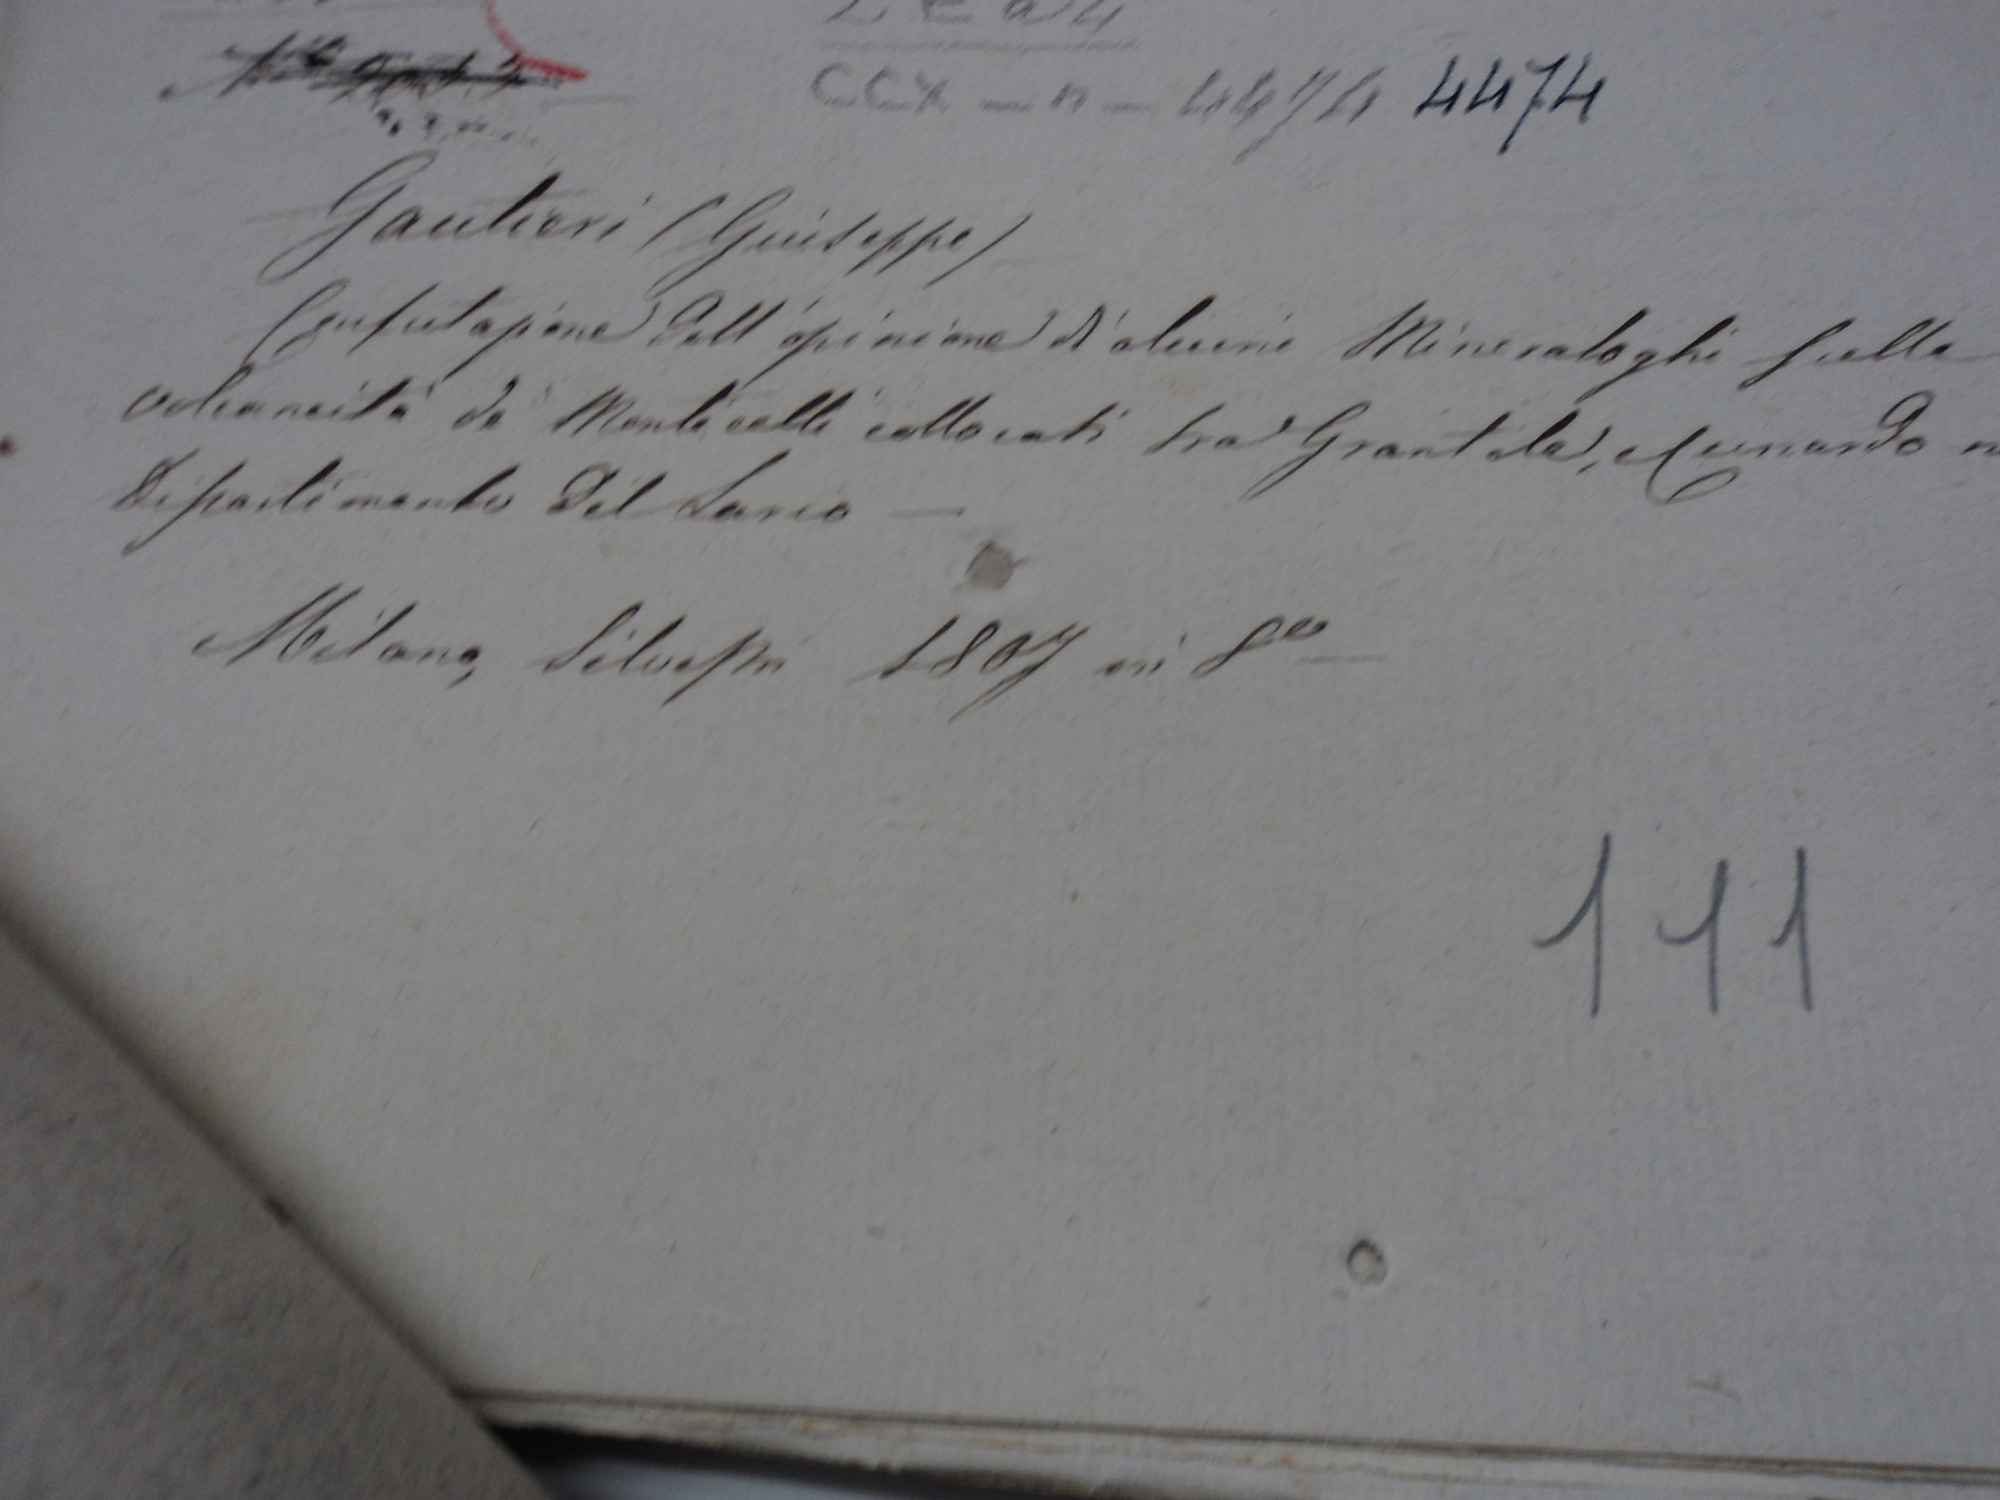 CCX - n - 4474 4474
Gautieri (Giuseppe)
Confutazione dell'opinione di alcuni Mineraloghi sulla
volcaneità de' Monticelli collocati tra Grantola, e Cunardo
Dipartimento del Lario —
Milano, Silvestri 1807 in 8°
111